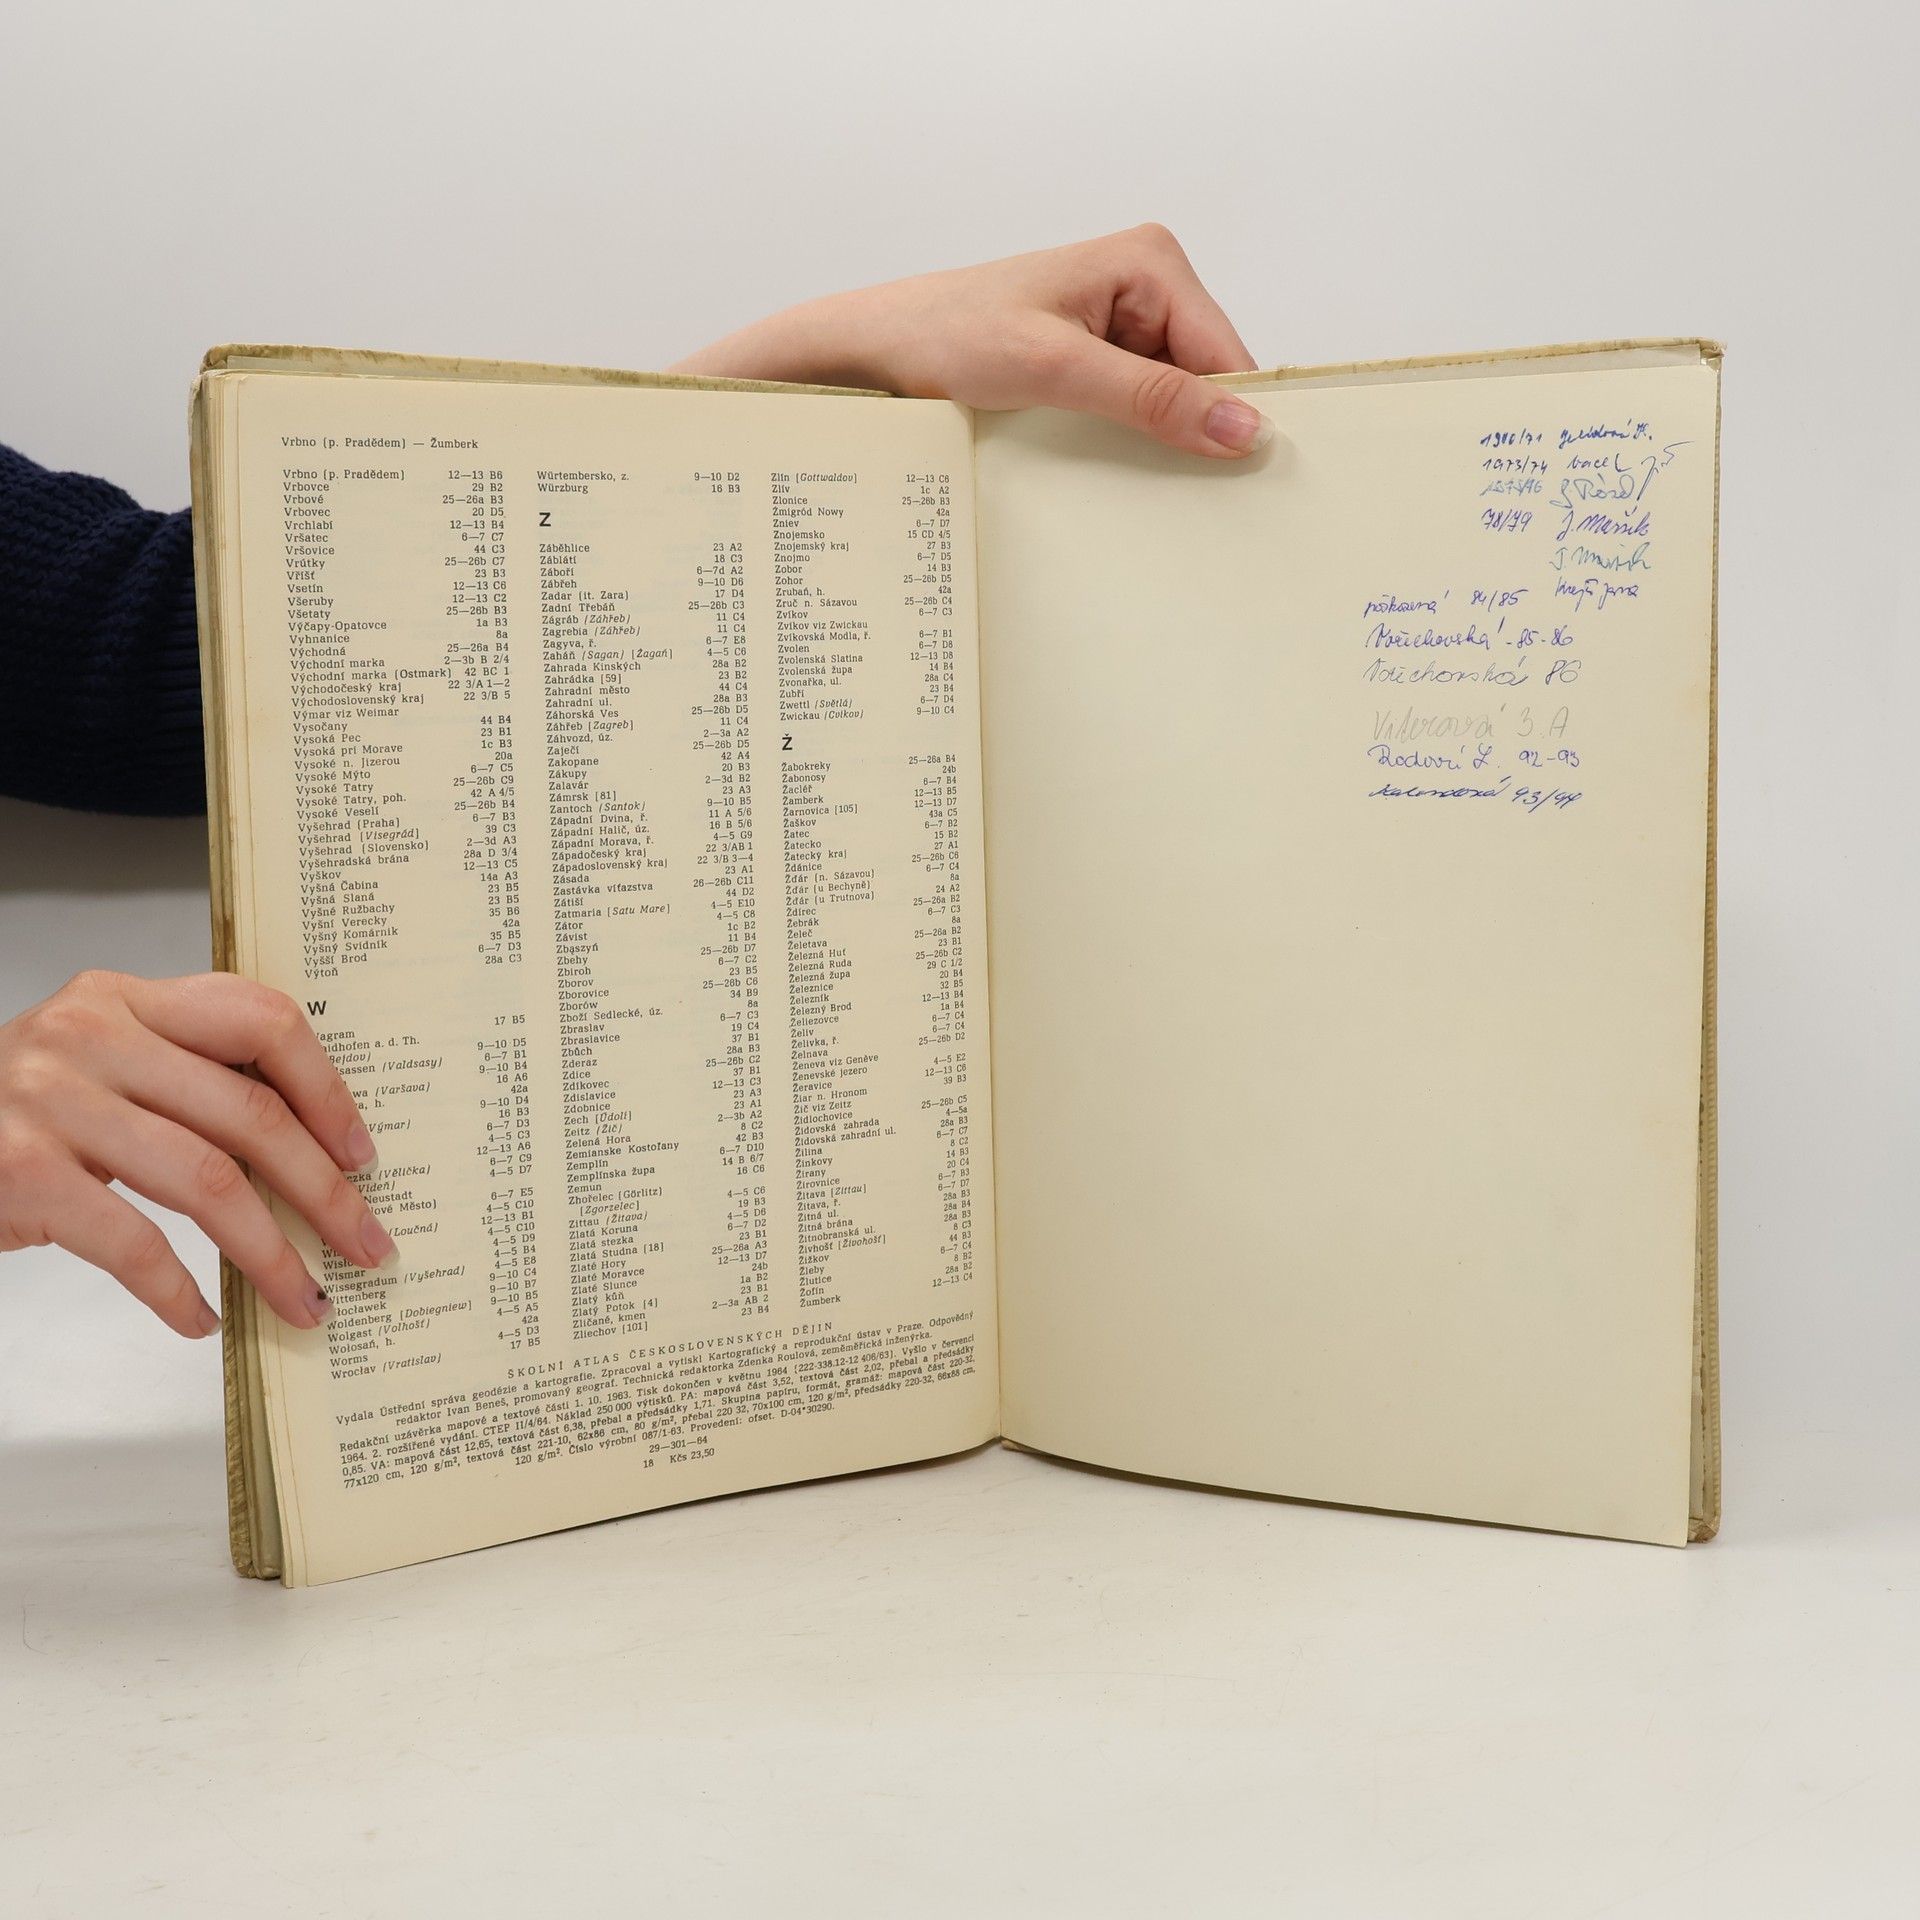 Vrbno (p. Pradědem) — Žumberk
Vrbno (p. Pradědem) 12—13 B6
Vrbovce 29 B2
Vrbové 25—26a B3
Vrbovec 20 D5
Vrchlabí 12—13 B4
Vršatec 6—7 C7
Vršovice 44 C3
Vrútky 25—26b C7
Vříšť 23 B3
Vsetín 12—13 C6
Všeruby 12—13 C2
Všetaty 25—26b B3
Výčapy-Opatovce 1a B3
Vyhnanice 8a
Východná 25—26a B4
Východní marka 2—3b B 2/4
Východní marka (Ostmark) 42 BC 1
Východočeský kraj 22 3/A 1—2
Východoslovenský kraj 22 3/B 5
Výmar viz Weimar
Vysočany 44 B4
Vysoká Pec 23 B1
Vysoká pri Morave 1c B3
Vysoké n. Jizerou 20a
Vysoké Mýto 6—7 C5
Vysoké Tatry 25—26b C9
Vysoké Tatry, poh. 42 A 4/5
Vysoké Veselí 25—26b B4
Vyšehrad (Praha) 6—7 B3
Vyšehrad [Visegrád] 39 C3
Vyšehrad (Slovensko) 2—3d A3
Vyšehradská brána 28a D 3/4
Vyškov 12—13 C5
Vyšná Čabina 14a A3
Vyšná Slaná 23 B5
Vyšné Ružbachy 23 B5
Vyšní Verecky 35 B6
Vyšný Komárnik 42a
Vyšný Svidník 35 B5
Vyšší Brod 6—7 D3
Výtoň 28a C3
W
agram 17 B5
aidhofen a. d. Th. 9—10 D5
Bejdov) 6—7 B1
sassen (Valdsasy) 9—10 B4
16 A6
wa (Varšava) 42a
a, h. 9—10 D4
16 B3
Výmar) 6—7 D3
4—5 C3
12—13 A6
6—7 C9
czka (Vělička) 4—5 D7
Vídeň)
Neustadt 6—7 E5
ové Město) 4—5 C10
12—13 B1
(Loučná) 4—5 C10
4—5 D9
4—5 B4
Wismar 4—5 E8
Wissegradum (Vyšehrad) 9—10 C4
Wittenberg 9—10 B7
łocławek 9—10 B5
Woldenberg [Dobiegniew] 4—5 A5
Wolgast (Volhošť) 42a
Wołosań, h. 4—5 D3
Worms 17 B5
Wrocław (Vratislav)
Würtembersko, z. 9—10 D2
Würzburg 16 B3
Z
Záběhlice 23 A2
Záblatí 18 C3
Záboří 6—7d A2
Zábřeh 9—10 D6
Zadar (it. Zara) 17 D4
Zadní Třebáň 25—26b C3
Zágráb (Záhřeb) 11 C4
Zagrebia (Záhřeb) 11 C4
Zagyva, ř. 6—7 E8
Zaháň (Sagan) [Żagań] 4—5 C6
Zahrada Kinských 28a B2
Zahrádka [59] 23 B2
Zahradní město 44 C4
Zahradní ul. 28a B3
Záhorská Ves 25—26b D5
Záhřeb [Zagreb] 11 C4
Záhvozd, úz. 2—3a A2
Zaječí 25—26b D5
Zakopane 42 A4
Zákupy 20 B3
Zalavár 2—3d B2
Zámrsk [81] 23 A3
Zantoch (Santok) 9—10 B5
Západní Dvina, ř. 11 A 5/6
Západní Halič, úz. 16 B 5/6
Západní Morava, ř. 4—5 G9
Západočeský kraj 22 3/AB 1
Západoslovenský kraj 22 3/B 3—4
Zásada 23 A1
Zastávka víťazstva 26—26b C11
Zátiší 44 D2
Zatmaria [Satu Mare] 4—5 E10
Zátor 4—5 C8
Závist 1c B2
Zbąszyń 11 B4
Zbehy 25—26b D7
Zbiroh 6—7 C2
Zborov 23 B5
Zborovice 25—26b C6
Zborów 34 B9
Zboží Sedlecké, úz. 8a
Zbraslav 6—7 C3
Zbraslavice 19 C4
Zbůch 37 B1
Zderaz 28a B3
Zdice 25—26b C2
Zdíkovec 37 B1
Zdislavice 12—13 C3
Zdobnice 23 A3
Zech [Údolí] 23 A1
Zeitz (Žič) 2—3b A2
Zelená Hora 8 C2
Zemianske Kostoľany 42 B3
Zemplín 6—7 D10
Zemplínska župa 14 B 6/7
Zemun 16 C6
Zhořelec (Görlitz)
[Zgorzelec] 4—5 C6
Zittau (Žitava) 19 B3
Zlatá Koruna 4—5 D6
Zlatá stezka 6—7 D2
Zlatá Studna [18] 23 B1
Zlaté Hory 25—26a A3
Zlaté Moravce 12—13 D7
Zlaté Slunce 24b
Zlatý kůň 1a B2
Zlatý Potok [4] 23 B1
Zličané, kmen 2—3a AB 2
Zliechov [101] 23 B4
Zlín [Gottwaldov] 12—13 C6
Zliv 1c A2
Zlonice 25—26b B3
Żmigród Nowy 42a
Zniev 6—7 D7
Znojemsko 15 CD 4/5
Znojemský kraj 27 B3
Znojmo 6—7 D5
Zobor 14 B3
Zohor 25—26b D5
Zrubaň, h. 42a
Zruč n. Sázavou 25—26b C4
Zvíkov 6—7 C3
Zvíkov viz Zwickau
Zvíkovská Modla, ř. 6—7 B1
Zvolen 6—7 D8
Zvolenská Slatina 12—13 D8
Zvolenská župa 14 B4
Zvonařka, ul. 28a C4
Zubří 23 B4
Zwettl (Světlá) 6—7 D4
Zwickau (Cvikov) 9—10 C4
Ž
Žabokreky 25—26a B4
Žabonosy 24b
Žacléř 6—7 B4
Žamberk 12—13 B5
Žarnovica [105] 12—13 D7
Žaškov 43a C5
Žatec 6—7 B2
Žatecko 15 B2
Žatecký kraj 27 A1
Ždánice 25—26b C6
Žďár (n. Sázavou) 6—7 C4
Žďár (u Bechyně) 8a
Žďár (u Trutnova) 24 A2
Ždírec 25—26a B2
Žebrák 6—7 C3
Želeč 8a
Želetava 25—26a B2
Železná Huť 23 B1
Železná Ruda 25—26b C2
Železná župa 29 C 1/2
Železnice 20 B4
Železník 32 B5
Železný Brod 12—13 B4
Želiezovce 1a B4
Želiv 6—7 C4
Želivka, ř. 6—7 C4
Želnava 25—26b D2
Ženeva viz Genève
Ženevské jezero 4—5 E2
Žeravice 12—13 C6
Žiar n. Hronom 39 B3
Žič viz Zeitz
Židlochovice 25—26b C5
Židovská zahrada 4—5a
Židovská zahradní ul. 28a B3
Žilina 6—7 C7
Žinkovy 8 C2
Žirany 14 B3
Žirovnice 20 C4
Žitava [Zittau] 6—7 B3
Žitava, ř. 6—7 D7
Žitná ul. 28a B3
Žitná brána 28a B4
Žitnobranská ul. 28a B3
Živhošť [Živohošť] 8 C3
Žižkov 44 B3
Žleby 6—7 C4
Žlutice 8 B2
Žofín 28a B2
Žumberk 12—13 C4
ŠKOLNÍ ATLAS ČESKOSLOVENSKÝCH DĚJIN
Vydala Ústřední správa geodézie a kartografie. Zpracoval a vytiskl Kartografický a reprodukční ústav v Praze. Odpovědný
redaktor Ivan Beneš, promovaný geograf. Technická redaktorka Zdenka Roulová, zeměměřická inženýrka.
Redakční uzávěrka mapové a textové části 1. 10. 1963. Tisk dokončen v květnu 1964 (222-338.12-12 406/63). Vyšlo v červenci
1964. 2. rozšířené vydání. CTEP II/4/64. Náklad 250 000 výtisků. PA: mapová část 3,52, textová část 2,02, přebal a předsádky
0,85. VA: mapová část 12,65, textová část 6,38, přebal a předsádky 1,71. Skupina papíru, formát, gramáž: mapová část 220-32,
77x120 cm, 120 g/m², textová část 221-10, 62x86 cm, 80 g/m², přebal 220 32, 70x100 cm, 120 g/m², předsádky 220-32, 66x88 cm,
120 g/m². Číslo výrobní 087/1-63. Provedení: ofset. D-04*30290.
29—301—64
18 Kčs 23,50
1973/74
78/79 J. Mašík
84/85
Vořechovská - 85-86
Vořechovská 86
3. A
92-93
93/94